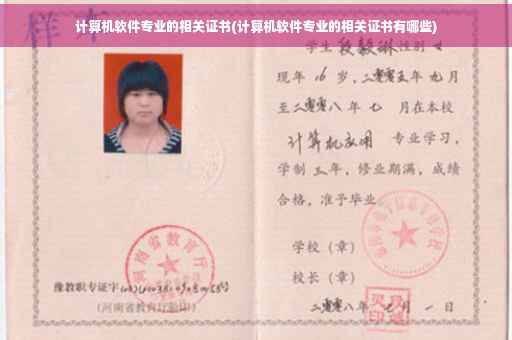 计算机软件专业的相关证书(计算机软件专业的相关证书有哪些)
样本
学生段毅琳性别女
现年16岁，二零零五年九月
至二零零八年七月在本校
计算机应用 专业学习，
学制三年，修业期满，成绩
合格，准予毕业。
学校（章）
校长（章）
二零零八年七月一日
河南省教育厅
豫教职专证字
(河南省教育厅验印)